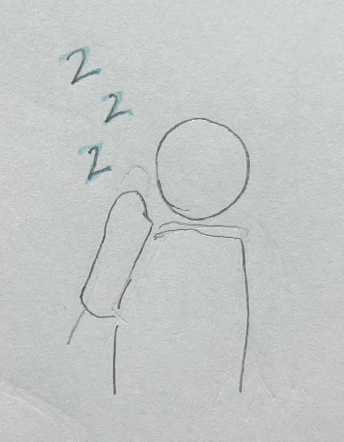 z
z
z